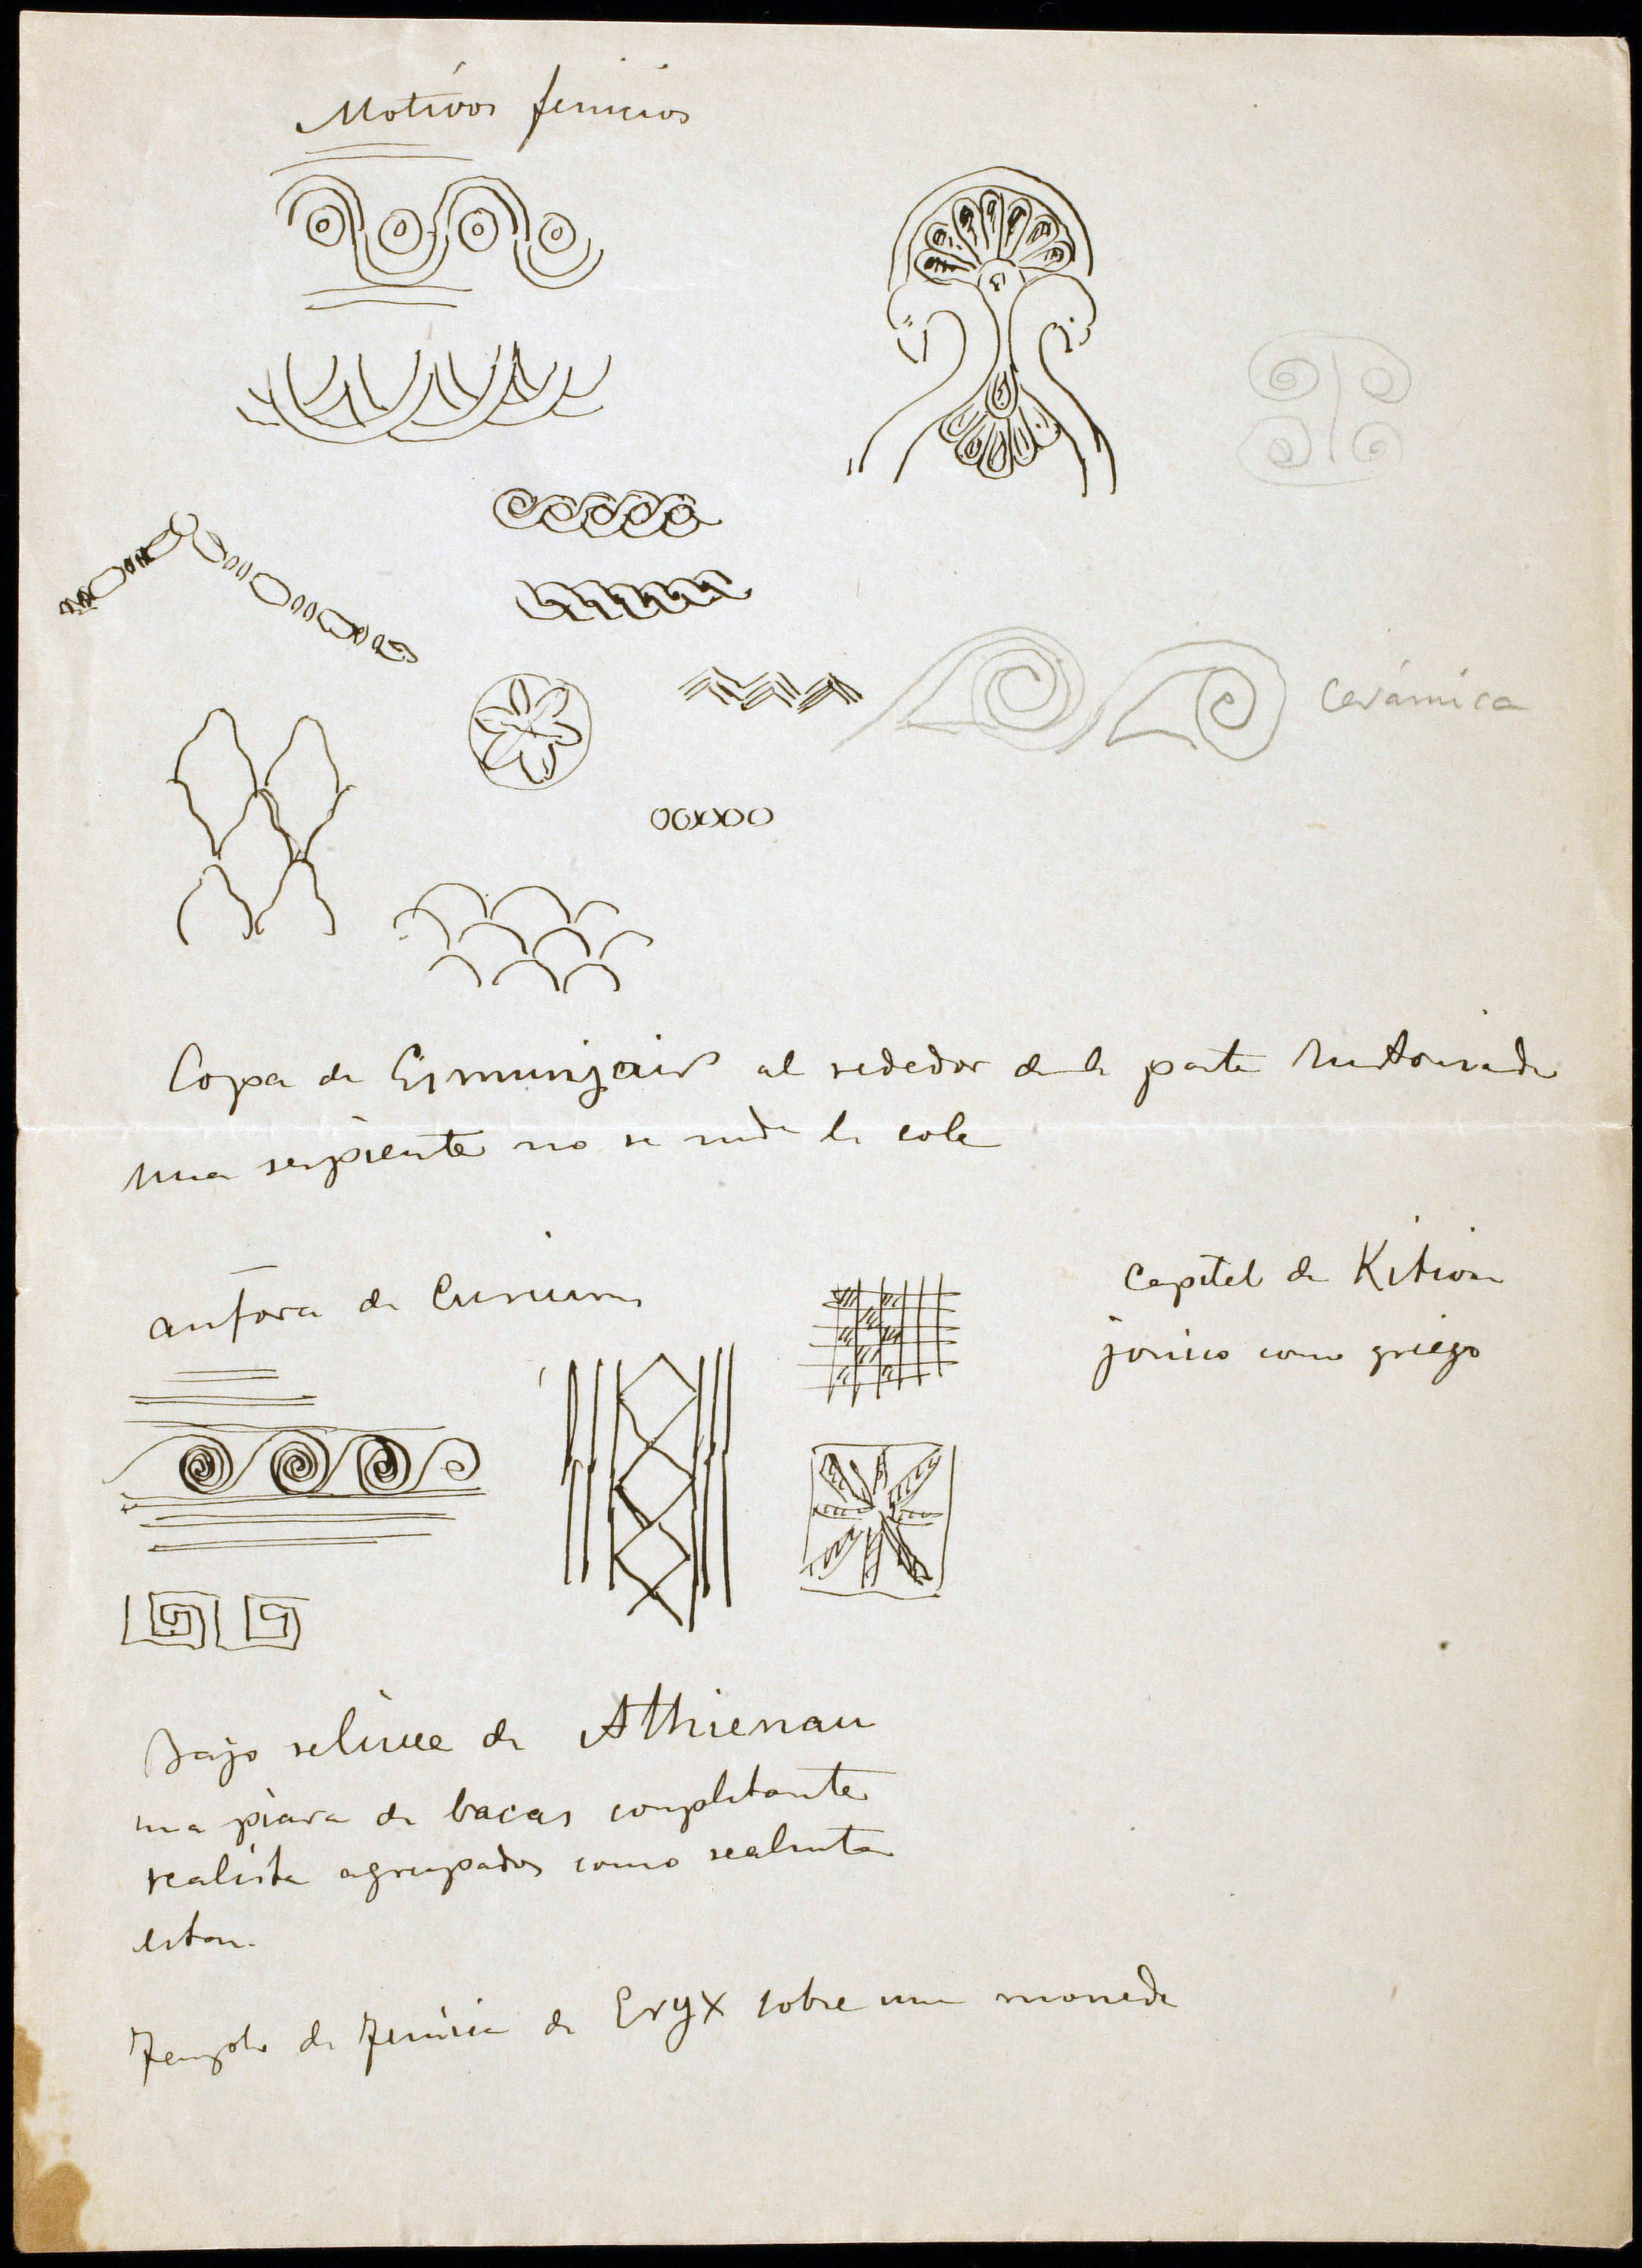 Motivos fenicios
Cerámica
Copa de al rededor de la parte
una serpiente no se la cola
anfora de Curium
Capitel de Kition
jonico como griego
Bajo relieve de Athienau
una piara de bacas
realista agrupados como
estan.
Templo de de Eryx sobre una moneda